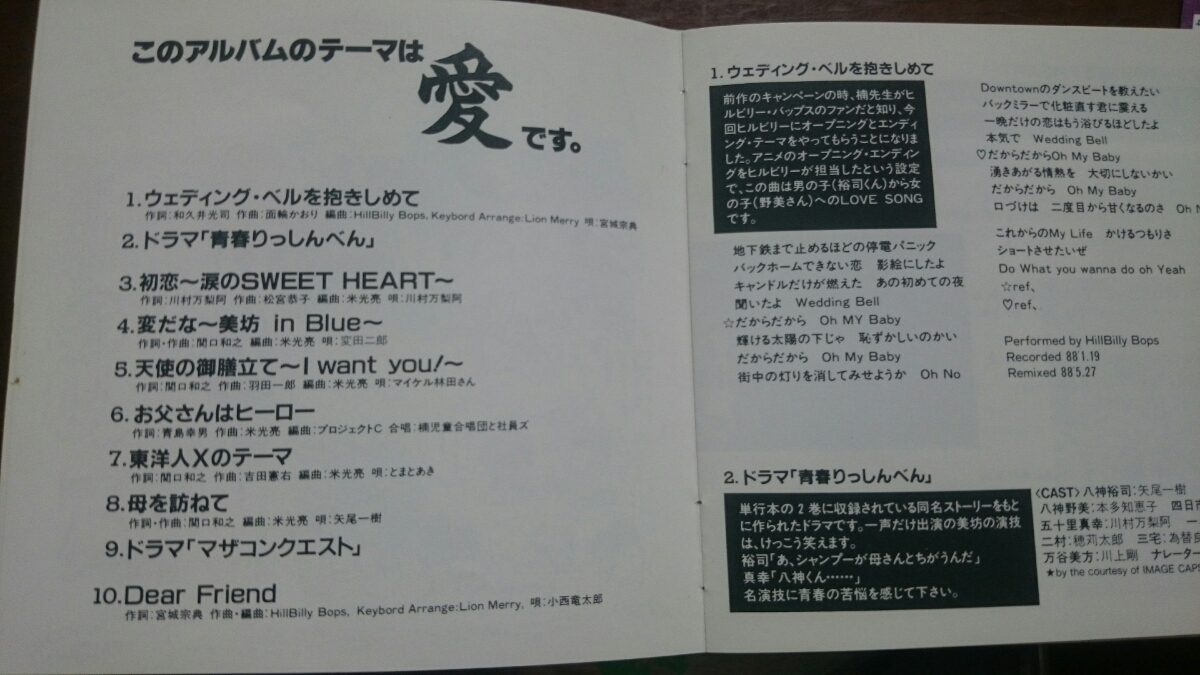 このアルバムのテーマは
愛です。
1.ウェディング・ベルを抱きしめて
作詞:和久井光司 作曲:面輪かおり 編曲:HillBilly Bops, Keybord Arrange:Lion Merry 唄:宮城宗典
2.ドラマ「青春りっしんべん」
3.初恋〜涙のSWEET HEART〜
作詞:川村万梨阿 作曲:松宮恭子 編曲:米光亮 唄:川村万梨阿
4.変だな〜美坊 in Blue〜
作詞・作曲:関口和之 編曲:米光亮 唄:変田二郎
5.天使の御膳立て〜I want you!〜
作詞:関口和之 作曲:羽田一郎 編曲:米光亮 唄:マイケル林田さん
6.お父さんはヒーロー
作詞:青島幸男 作曲:米光亮 編曲:プロジェクトC 合唱:楠児童合唱団と社員ズ
7.東洋人Xのテーマ
作詞:関口和之 作曲:吉田憲右 編曲:米光亮 唄:とまとあき
8.母を訪ねて
作詞・作曲:関口和之 編曲:米光亮 唄:矢尾一樹
9.ドラマ「マザコンクエスト」
10.Dear Friend
作詞:宮城宗典 作曲・編曲:HillBilly Bops, Keybord Arrange:Lion Merry, 唄:小西竜太郎
1.ウェディング・ベルを抱きしめて
前作のキャンペーンの時、楠先生がヒ
ルビリー・バップスのファンだと知り、今
回ヒルビリーにオープニングとエンディ
ング・テーマをやってもらうことになりま
した。アニメのオープニング・エンディン
グをヒルビリーが担当したという設定
で、この曲は男の子(裕司くん)から女
の子(野美さん)へのLOVE SONG
です。
地下鉄まで止めるほどの停電パニック
バックホームできない恋 影絵にしたよ
キャンドルだけが燃えた あの初めての夜
聞いたよ Wedding Bell
☆だからだから Oh MY Baby
輝ける太陽の下じゃ 恥ずかしいのかい
だからだから Oh My Baby
街中の灯りを消してみせようか Oh No
Downtownのダンスビートを教えたい
バックミラーで化粧直す君に震える
一晩だけの恋はもう浴びるほどしたよ
本気で Wedding Bell
♡だからだからOh My Baby
湧きあがる情熱を 大切にしないかい
だからだから Oh My Baby
口づけは 二度目から甘くなるのさ Oh
これからのMy Life かけるつもりさ
ショートさせたいぜ
Do What you wanna do oh Yeah
☆ref、
♡ref、
Performed by HillBilly Bops
Recorded 88'1.19
Remixed 88'5.27
2.ドラマ「青春りっしんべん」
単行本の2巻に収録されている同名ストーリーをもと
に作られたドラマです。一声だけ出演の美坊の演技
は、けっこう笑えます。
裕司「あ、シャンプーが母さんとちがうんだ」
真幸「八神くん……」
名演技に青春の苦悩を感じて下さい。
〈CAST〉八神裕司:矢尾一樹
八神野美:本多知恵子 四日市
五十里真幸:川村万梨阿 一
二村:穂苅太郎 三宅:為替良
万谷美方:川上剛 ナレーター
★by the courtesy of IMAGE CAP